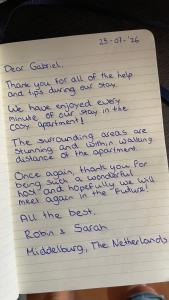 25-07-'26
Dear Gabriel,
Thank you for all of the help
and tips during our stay.
We have enjoyed every
minute of our stay in the
cosy apartment!
The surrounding areas are
stunning and within walking
distance of the apartment.
Once again, thank you for
being such a wonderful
host and hopefully we will
meet again in the future!
All the best,
Robin & Sarah
Middelburg, The Netherlands